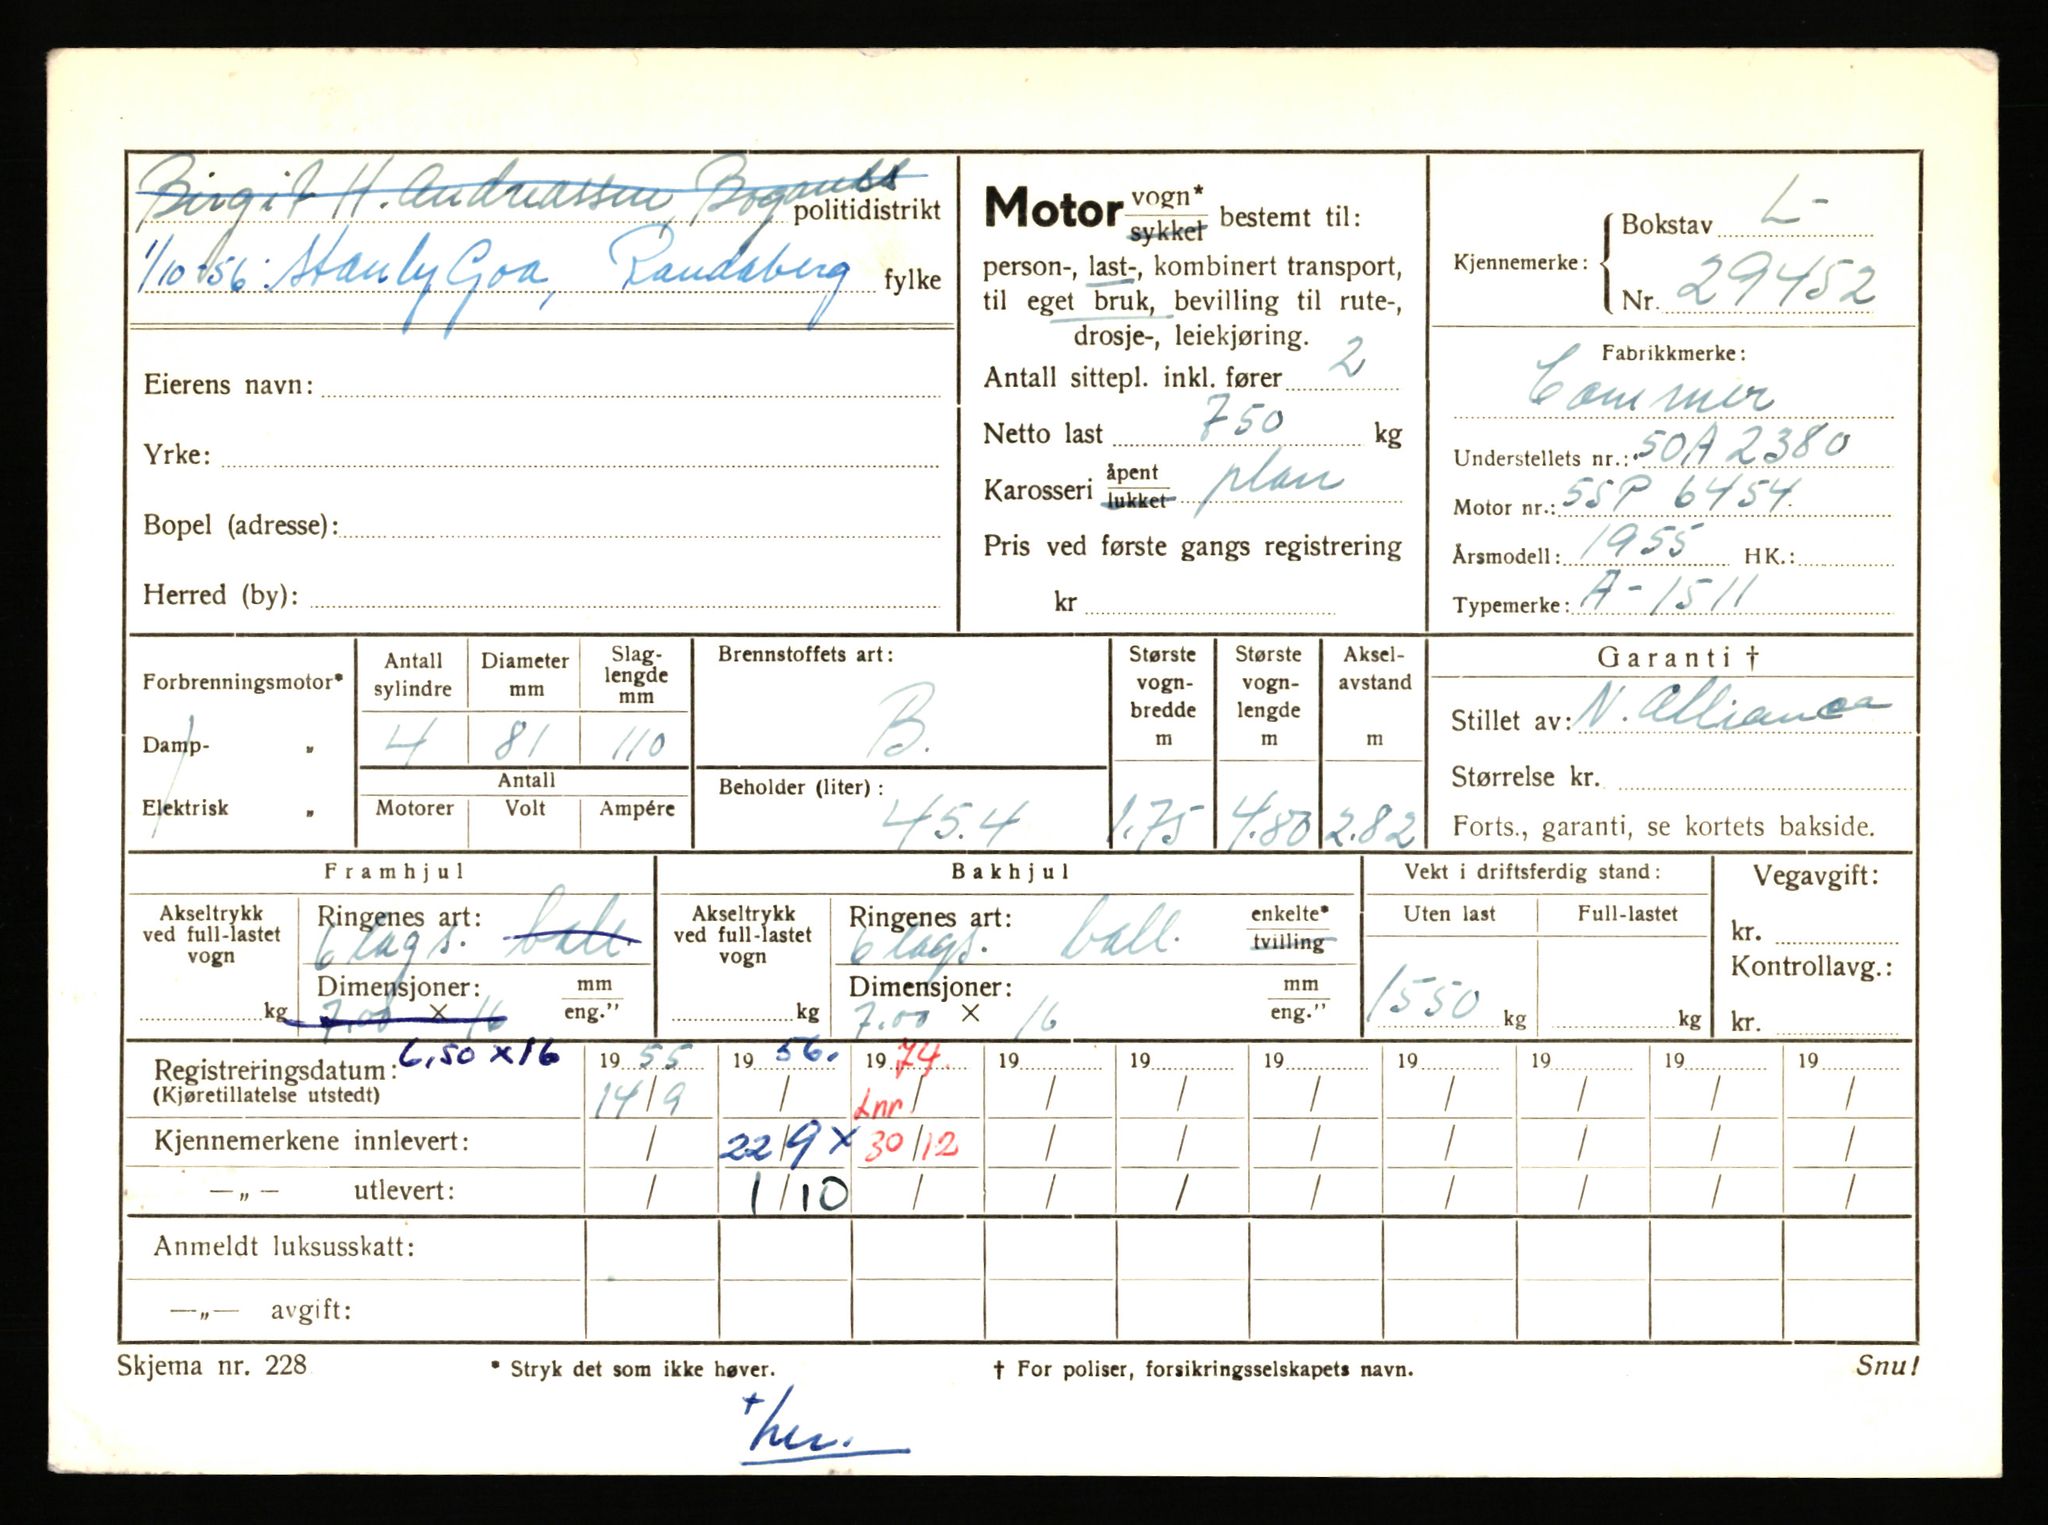 Birgit H. Andreassen, Boganes
politidistrikt
1/10-56: Stanly Goa, Randaberg
fylke
Eierens navn:
Yrke:
Bopel (adresse):
Herred (by):
Motor vogn* sykkel bestemt til:
person-, last-, kombinert transport,
til eget bruk, bevilling til rute-,
drosje-, leiekjøring.
Antall sittepl. inkl. fører 2
Netto last 750 kg
Karosseri åpent lukket plan
Pris ved første gangs registrering
kr
Kjennemerke: Bokstav L-
Nr. 29452
Fabrikkmerke:
Commer
Understellets nr.: 50A2380
Motor nr.: 55P 6454
Årsmodell: 1955 HK.:
Typemerke: A-1511
Forbrenningsmotor*
Damp- "
Elektrisk "
Antall sylindre
Diameter mm
Slag-lengde mm
4 81 110
Antall
Motorer Volt Ampére
Brennstoffets art:
B.
Beholder (liter):
45.4
Største vogn-bredde m
1.75
Største vogn-lengde m
4.80
Aksel-avstand m
2.82
Garanti †
Stillet av: N. Alliance
Størrelse kr.
Forts., garanti, se kortets bakside.
Framhjul
Akseltrykk ved full-lastet vogn
kg
Ringenes art:
6 lags. ball.
Dimensjoner: mm eng."
7.00 × 16
6,50 x 16
Bakhjul
Akseltrykk ved full-lastet vogn
kg
Ringenes art: enkelte* tvilling
6 lags. ball.
Dimensjoner: mm eng."
7.00 × 16
Vekt i driftsferdig stand:
Uten last Full-lastet
1550 kg kg
Vegavgift:
kr.
Kontrollavg.:
kr.
Registreringsdatum: 19 55 19 56. 19 74. 19 19 19 19 19 19 19
(Kjøretillatelse utstedt) 14/9 / Lnr / / / / / / / /
Kjennemerkene innlevert: / 22/9 x 30/12 / / / / / / /
—„— utlevert: / 1/10 / / / / / / / /
Anmeldt luksusskatt:
—„— avgift:
Skjema nr. 228 * Stryk det som ikke høver. † For poliser, forsikringsselskapets navn. Snu!